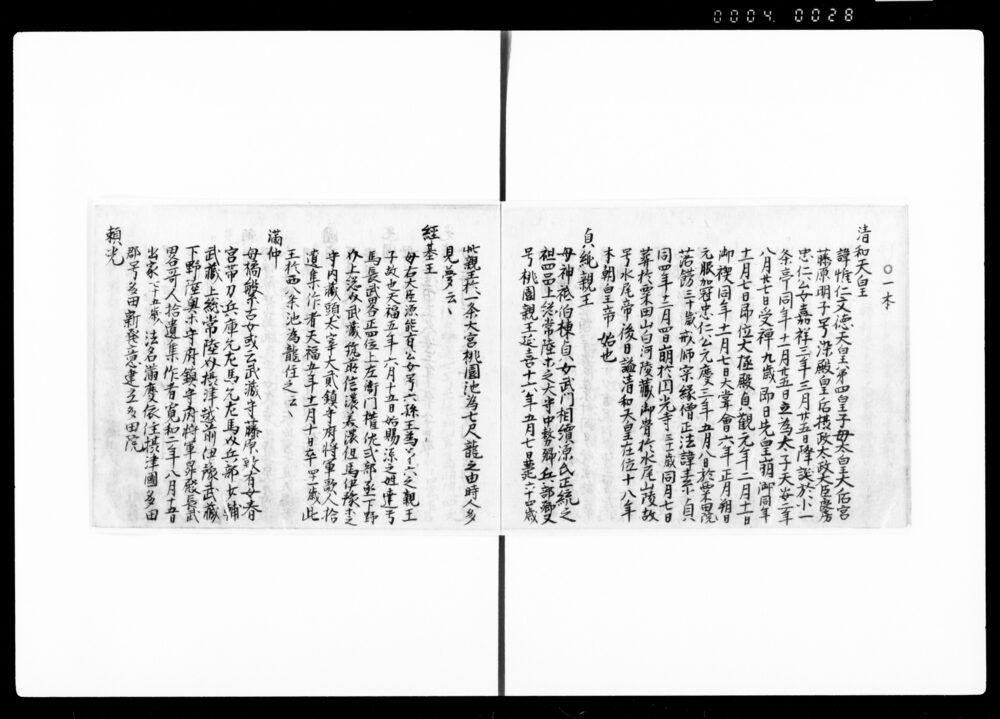 0004. 0028
○一本
清和天皇
諱惟仁文徳天皇第四皇子母太皇太后宮
藤原明子号染殿皇后摂政太政大臣良房
忠仁公女嘉祥三年三月廿五日降誕於小一
条亭同年十一月廿五日立為太子天安二年
八月廿七日受禅九歳即日先皇崩御同年
十一月七日即位大極殿貞観元年二月十一日
御禊同年十一月七日大嘗會六年正月朔日
元服加冠忠仁公元慶三年五月八日於粟田院
落餝三十歳戒師宗縁僧正法諱素貞
同四年十二月四日崩於円光寺三十歳同月七日
葬於粟田山白河陵蔵御骨於水尾山陵故
号水尾帝後日謚清和天皇在位十八年
本朝皇帝始也
貞純親王
母神祇伯棟貞女武門相續源氏正統之
祖四品上総常陸等之大守中務卿兵部卿又
号桃園親王延喜十六年五月七日薨六十四歳
此親王於一条大宮桃園池為七尺龍之由時人多
見夢云々
經基王
母右大臣源能有公女号六孫王為第六之親王
子故也天福五年六月十五日始賜源之姓達弓
馬長武畧正四位上左衛門権佐式部丞下野
介上総介武蔵筑前信濃美濃但馬伊豫等之
守内蔵頭太宰大貳鎮守府将軍歌人拾
遺集作者天福五年十一月十日卒 此
王於西八条池為龍住之云々
滿仲
母橘繁古女或云武蔵守藤原敏有女春
宮帯刀兵庫允左馬允左馬助兵部少輔
武蔵上総常陸介摂津越前伊豫武蔵
下野陸奥等守府鎮守府将軍昇殿長武
畧哥人拾遺集作者寛和二年八月十五日
出家 法名滿慶依住摂津國多田
郡号多田新發意建立多田院
頼光